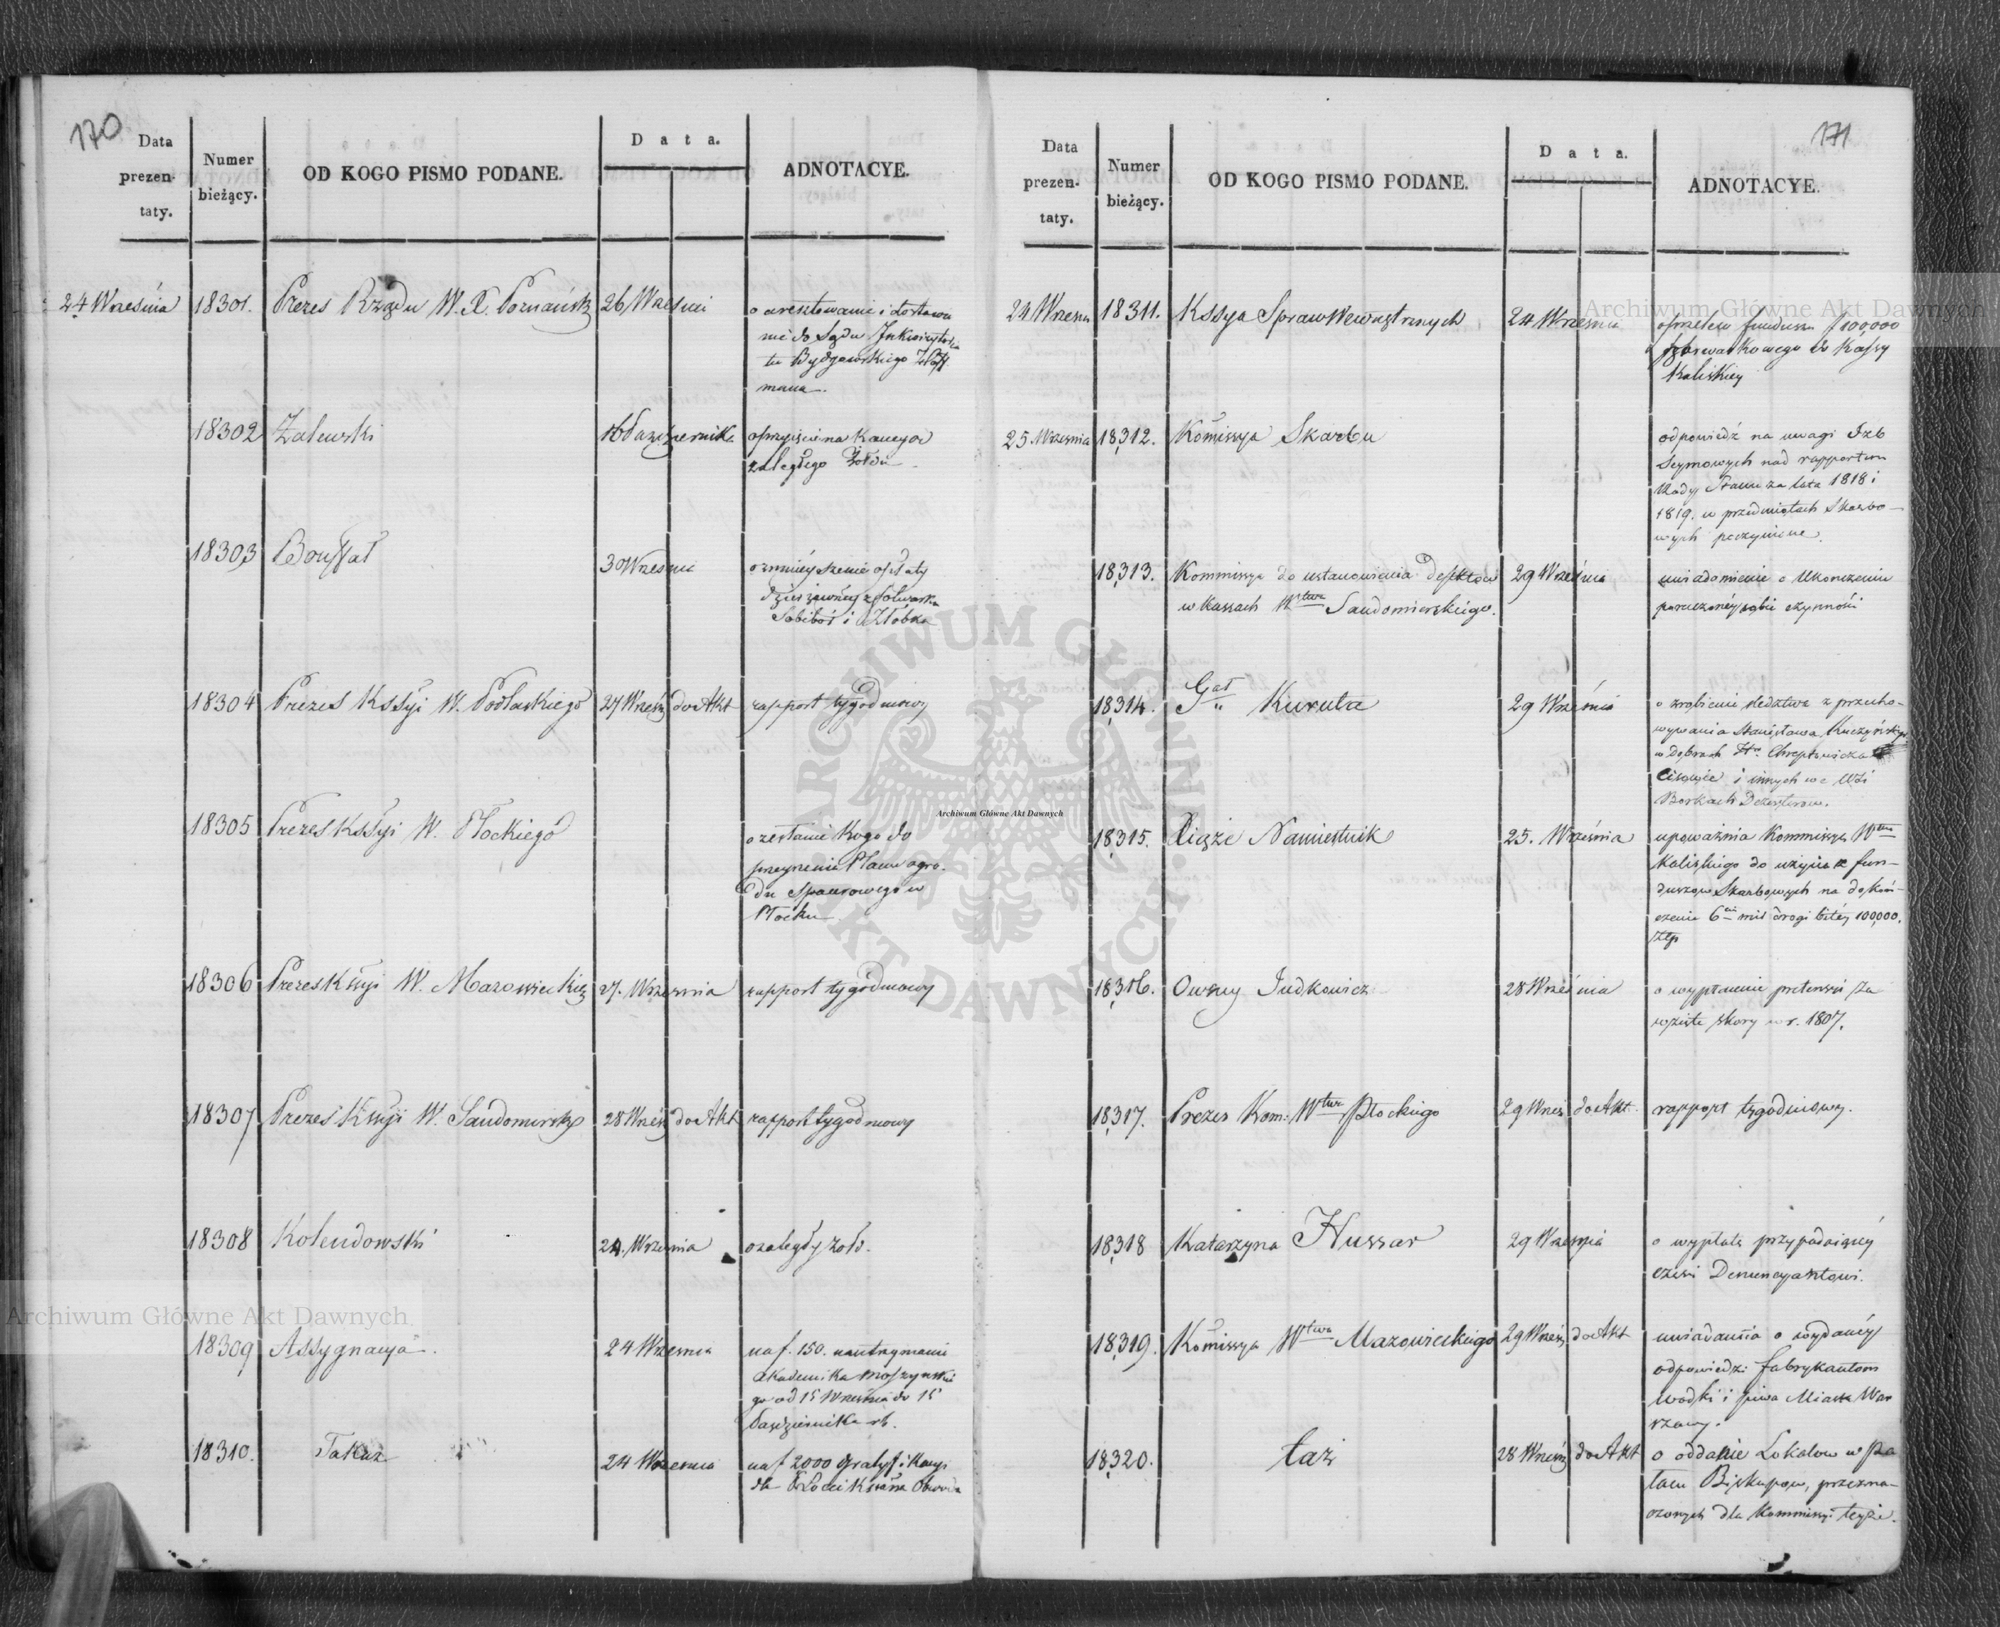 170
Data prezen-taty.
Numer bieżący.
OD KOGO PISMO PODANE.
Data.
ADNOTACYE.
24 Września 18301. Prezes Rządu W. X. Poznańsk 26 Wrześni o aresztowanie i dostawie
nie do Sądu Inkwizytoria
tu Bydgowskiego
mana.
18302 Zalewski 16 Października o przyjęcie na Kaucyą
zaległego Żołdu
18303 Boussał 30 Wrześni o zmnieyszenie opłaty
dzierżawney z Folwarku
Sobibór i Złóbka
18304 Prezes Kssyi W. Podlaskiego 27 Wześ do Akt rapport tygodniowy
18305 Prezes Kssyi W. Płockiego
o zesłanie Kogo do
przeyrzenia Planu ogro-
du Spacerowego w
Płocku
18306 Prezes Kssyi W. Mazowieckieg 27. Września rapport tygodniowy
18307 Prezes Kssyi W. Sandomirsk 28 Wześ do Akt rapport tygodniowy
18308 Kolendowski 24. Września o zaległy żołd.
18309 Assygnacya. 24 Września na f. 150. na utrzymanie
Akademika Moszyńskie
go od 15 Września do 15
Października rb.
18310. Takaż 24 Września na f 2000 gratyfikacyi
dla
Archiwum Główne Akt Dawnych
171
Data prezen-taty.
Numer bieżący.
OD KOGO PISMO PODANE.
Data.
ADNOTACYE.
24 Wrześn 18311. Kssya Spraw Wewnętrznych 24 Września o przelew funduszu f 100,000
do Kassy
Kaliskiey
25 Września 18312. Kom̃issya Skarbu odpowiedź na uwagi Izb
Seymowych nad rapportem
Rady Stanu za lata 1818 i
1819. w przedmiotach Skarbo-
wych poczynione.
18313. Kommissya do ustanowienia Defektów 29 Września uwiadomienie o Ukończeniu
w Kassach Wtwa Sandomierskiego. poruczoney sobie czynności
18314. Gał Kuruta 29 Wrześnie o zrobienie śledztwa z przecho-
wywania Stanisława Kuczyńskiego
w Dobrach Hr. Chreptowicza
Cisowie i innych we Wsi
Borkach Dezerterow.
18315. Xiąże Namiestnik 25. Września upoważnia Kommissyą Wtwa
Kaliskiego do użycia z fun-
duszow Skarbowych na dokoń-
czenie 6ciu mil drogi bitéy 100,000.
złp
18316. Owsey Judkowicz 28 Września o wypłacenie pretensyi za
wzięte skory w r. 1807.
18317. Prezes Kom: Wtwa Płockiego 29 Wrześ do Akt. rapport tygodniowy.
18318 Katarzyna Hussar 29 Września o wypłatę przypadaiącéy
części Denuncyantowi.
18319. Kom̃issya Wtwa Mazowieckiego 29 Wrześ do Akt uwiadamia o wydanéy
odpowiedzi fabrykantom
wodki i piwa Miasta War
szawy.
18320. taż 28 Wrześ do Akt o oddanie Lokalow w Pa
łacu Biskupow, przezna-
czonych dla Kommissyi teyże.
Archiwum Główne Akt Dawnych
Archiwum Główne Akt Dawnych
ARCHIWUM GŁÓWNE AKT DAWNYCH